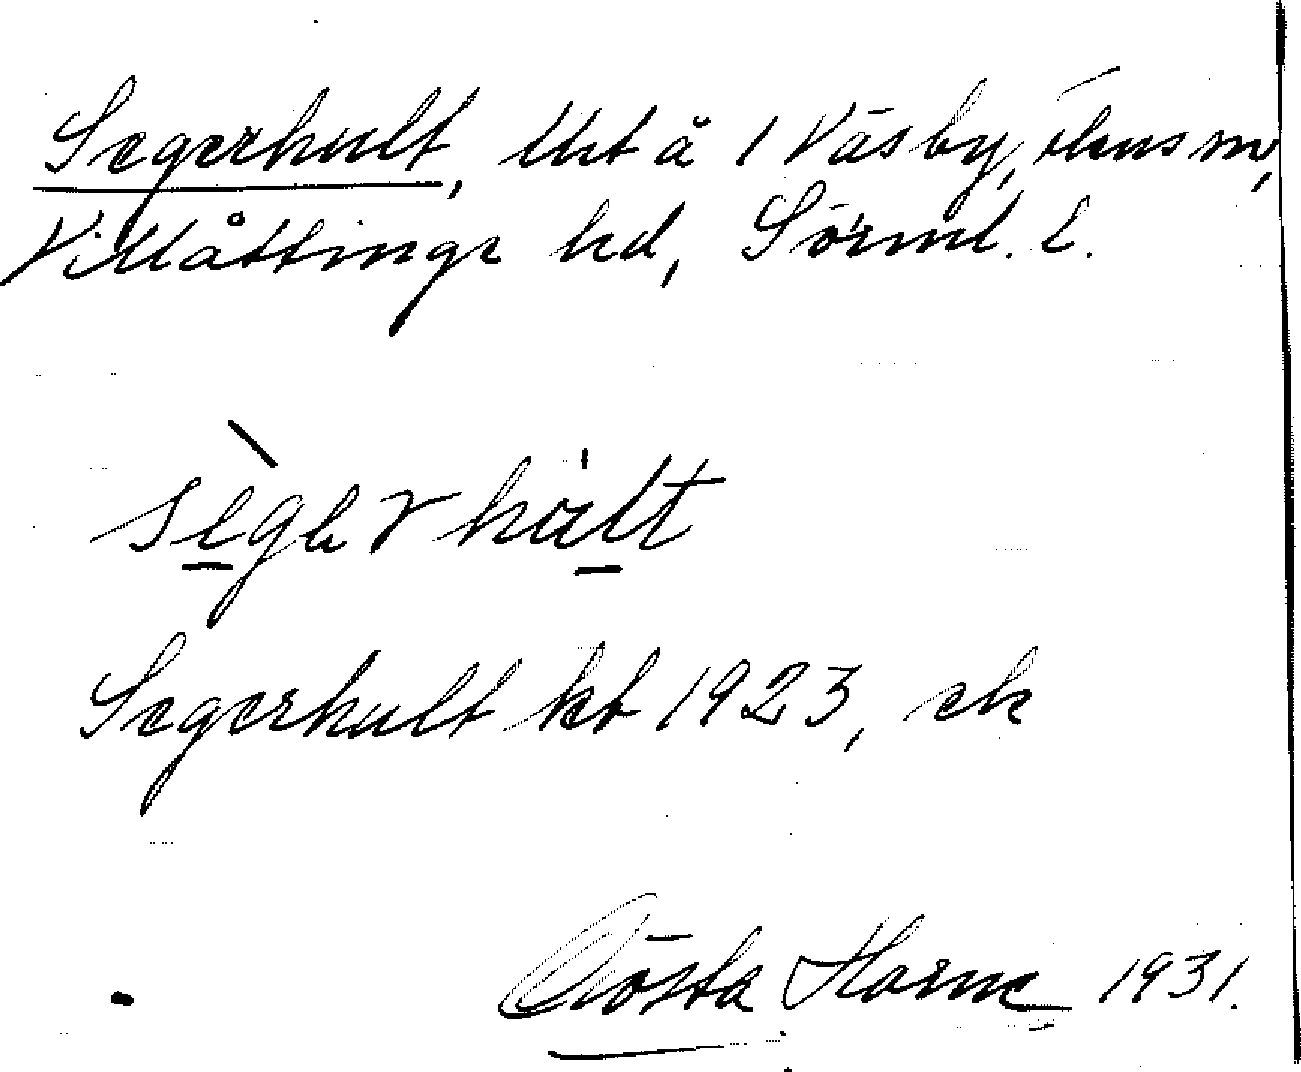 Segerhult, lht å 1 Väsby, Flens sn,
Villåttinge hd, Sörml. l.
sègərhult
Segerhult kb 1923, ek
Gösta Horne 1931.